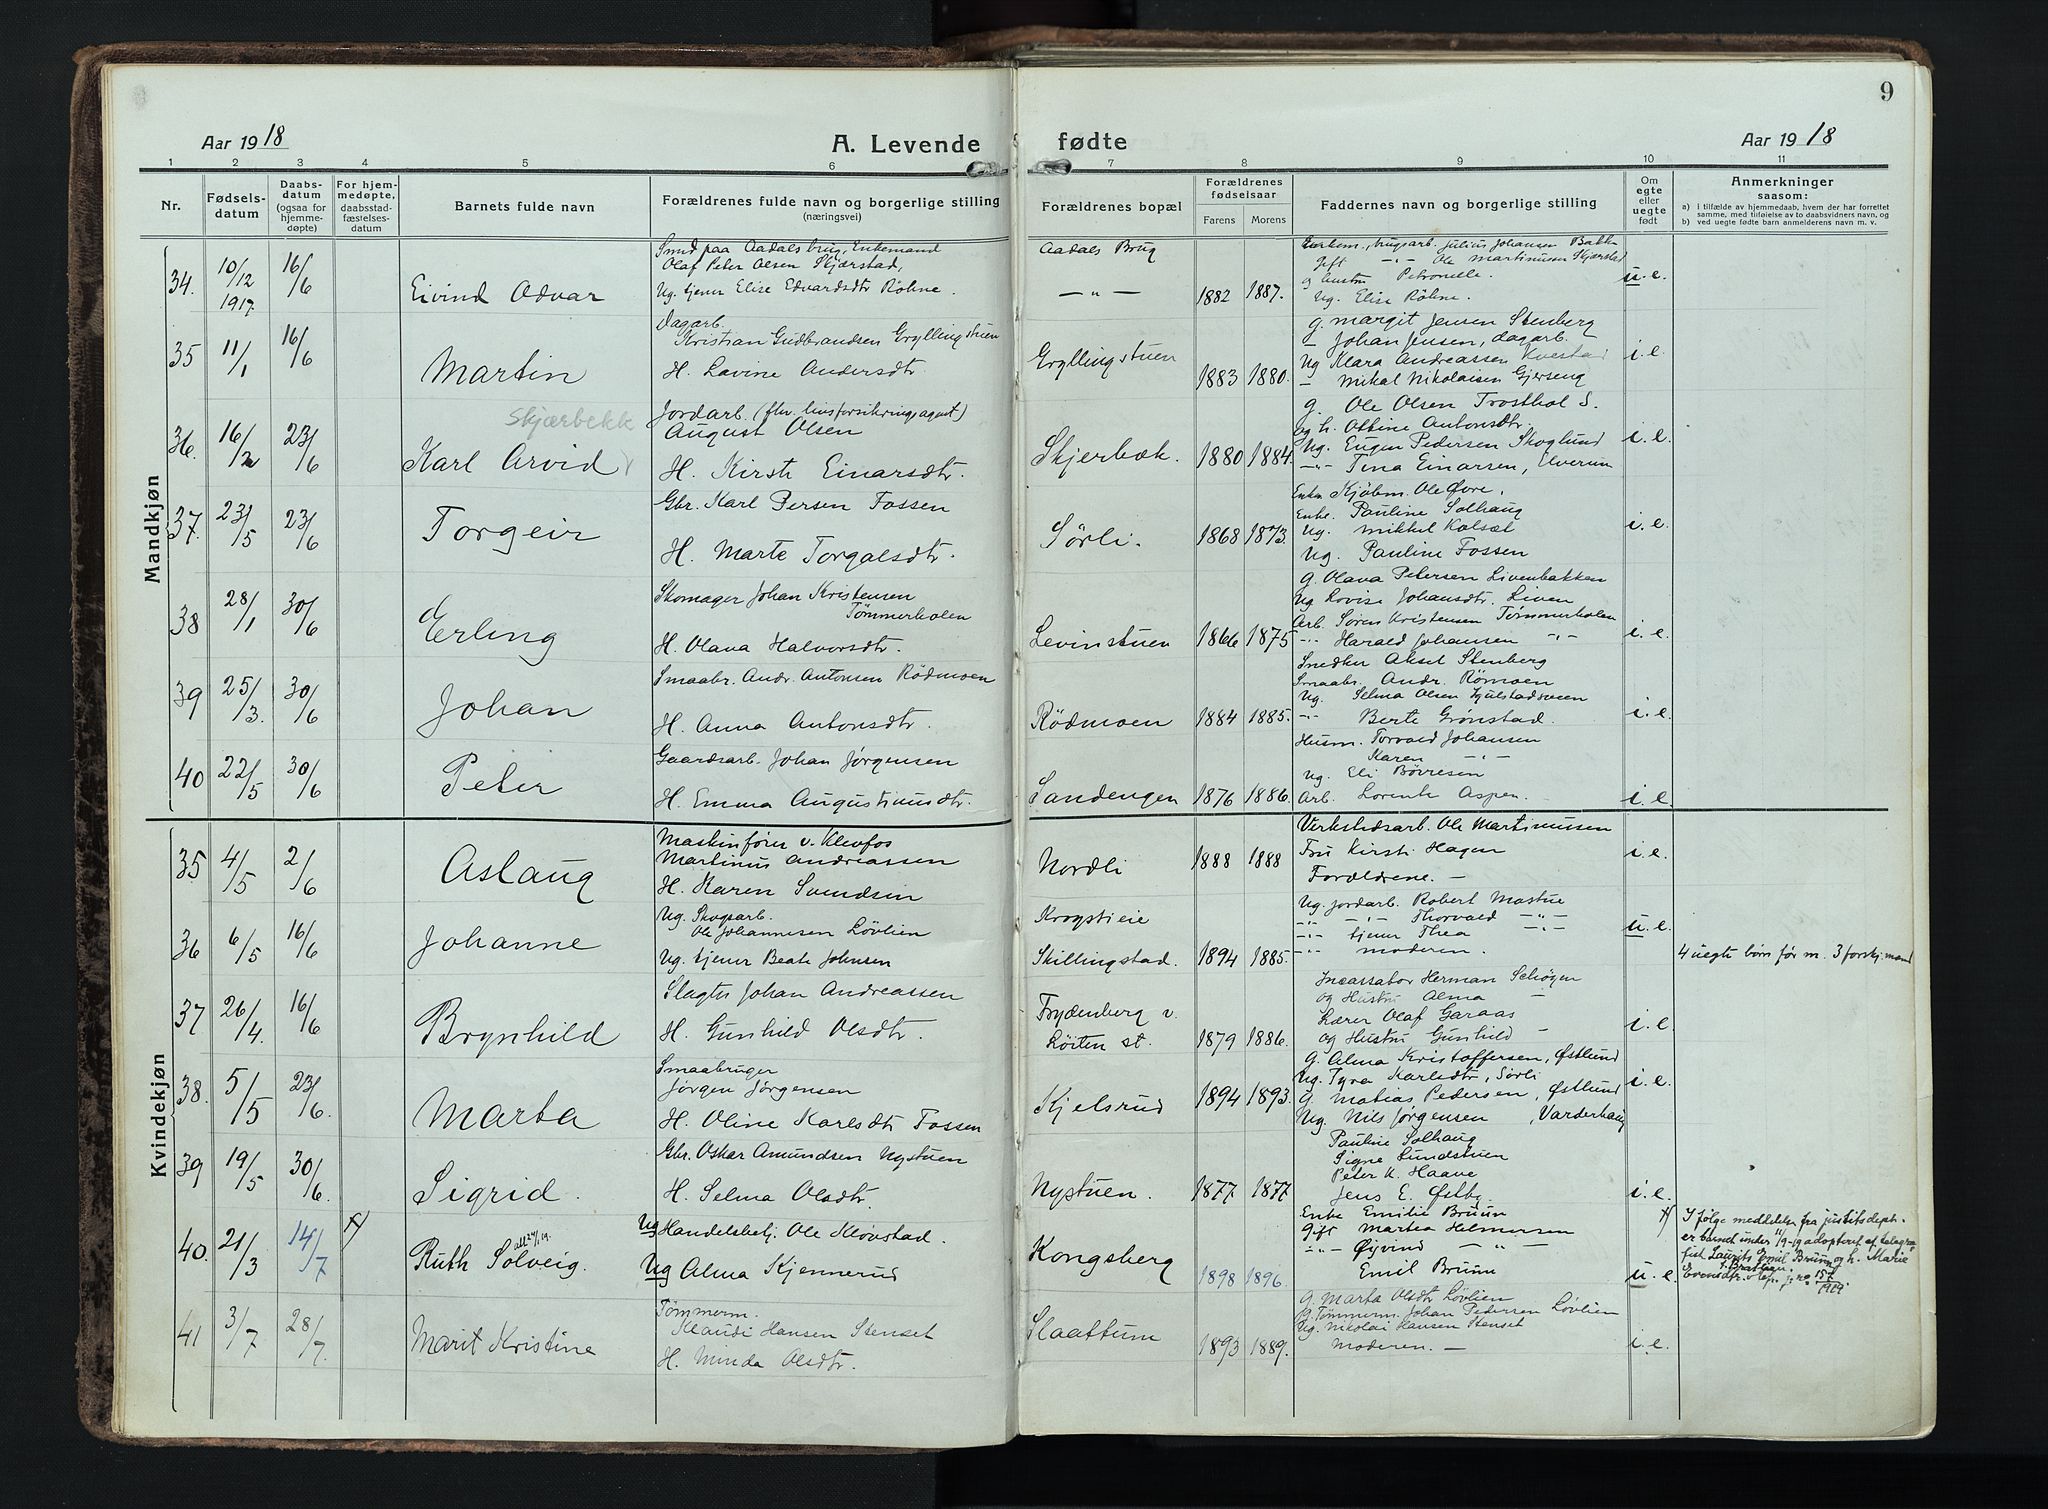 9
Aar 1918
A. Levende fødte
Aar 1918
1 2 3 4 5 6 7 8 9 10 11
Nr.
Fødsels-
datum
Daabs-
datum
(ogsaa for
hjemme-
døpte)
For hjem-
medøpte,
daabsstad-
fæstelses-
datum
Barnets fulde navn
Forældrenes fulde navn og borgerlige stilling
(næringsvei)
Forældrenes bopæl
Forældrenes
fødselsaar
Farens Morens
Faddernes navn og borgerlige stilling
Om
egte
eller
uegte
født
Anmerkninger
saasom:
a) i tilfælde av hjemmedaab, hvem der har forrettet
samme, med tilføielse av to daabsvidners navn, og
b) ved uegte fødte barn anmelderens navn m. v.
Mandkjøn
34. 10/12 1917. 16/6 Eivind Odvar
Smed paa Aadals brug, Enkemand
Olaf Peter Olsen Skjærstad,
Ug. tjener Elise Edvardsdtr Røhne.
Aadals Brug
— " — 1882 1887.
Enkem., brugsarb. Julius Johansen Bakken
Gift — " — Ole Martinusen Skjærstad
og hustru Petronelle.
Ug. Elise Røhne.
u. e.
35 11/1 16/6 Martin
Dagarb.
Kristian Gudbrandsen Gryllingstuen
H. Lovine Andersdtr.
Gryllingstuen 1883 1880.
g. Margit Jensen Stenberg
— Johan Jensen, dagarb.
Ug Klara Andreassen
— Mikal Nikolaisen Gjerseng
i. e.
36. 16/2 23/6 Karl Arvid
Skjærbekk
Jordarb. (fhv. livsforsikringsagent)
August Olsen
H. Kirsti Einarsdtr.
Skjerbæk. 1880 1884.
g. Ole Olsen Trosthol S.
og h. Ottine Antonsdtr.
Ug. Eugen Pedersen Skoglund
— " — Tina Einarsen, Elverum
i. e.
37. 23/5 23/6 Torgeir
Gbr. Karl Persen Fossen
H. Marte Torgalsdtr.
Sørli. 1868 1873.
Enkem Kjøbm. Ole Øvre,
Enke. Pauline Solhaug
Ug. Mikkel Kolsæt
Ug. Pauline Fossen
i. e.
38 28/1 30/6 Erling
Skomager Johan Kristensen
Tømmerholen
H. Olava Halvorsdtr.
Levinstuen 1866 1875
g. Olava Petersen Livenbakken
Ug Lovise Johansdtr. Liven
Arb. Søren Kristensen Tømmerholen
— " — Harald Johansen — " —
i. e.
39 25/3. 30/6 Johan
Smaabr. Andr. Antonsen Rödmoen
H. Anna Antonsdtr.
Rödmoen 1884 1885.
Snedker Aksel Stenberg
Smaabr. Andr. Rømoen
Ug. Selma Olsen Hjulstadsveen
— " — Berte Grønstad.
i. e.
40 22/5 30/6 Peter
Gaardsarb. Johan Jørgensen
H. Emma Augustinusdtr.
Sandengen 1876 1886.
Husm. Torvald Johansen
Karen — " —
Ug. Eli Børresen
Arb. Lorents Aspen.
i. e.
Kvindekjøn
35 4/5 2/6 Aslaug
Maskinfører v. Klevfos
Martinus Andreassen
H. Karen Svendsen
Nordli 1888 1888
Verkstedsarb. Ole Martinusen
Fru Kirsti Hagen
Forældrene. —
i. e.
36 6/5 16/6 Johanne
Ug. Skogsarb.
Ole Johannesen Løvlien
Ug. tjener Beate Johnsen
Krogstieie
Skillingstad. 1894 1885.
Ug. Jordarb. Robert Mastue
— " — Thorvald — " —
— " — tjener Thea — " —
— " — moderen.
u. e.
4 uegte børn før m. 3 forskj. mænd
37 26/4. 16/6 Brynhild
Slagter Johan Andreassen
H. Gunhild Olsdtr.
Frydenberg v.
Løiten st. 1879 1886.
Incassator Herman Schøyen
og Hustru Alma —
Lærer Olaf Garaas
og Hustru Gunhild —
i. e.
38. 5/5 23/6. Marta
Smaabruger
Jørgen Jørgensen
H. Oline Karlsdtr Fossen
Kjelsrud 1894 1893.
g. Alma Kristoffersen, Østlund
Ug. Tyra Karlsdtr, Sørli
g. Matias Pedersen, Østlund
Ug. Nils Jørgensen, Varderhaug
i. e.
39 19/5 30/6. Sigrid.
Gbr. Oskar Amundsen Nystuen
H. Selma Olsdtr.
Nystuen. 1877 1877
Pauline Solhaug
Signe Lundstuen
Peter K. Haave
Jens E. Østby.
i. e.
40. 21/3 14/7 Ruth Solveig.
Ug Handelsbetj. Ole Klovstad.
Ug Alma Kjennerud
Kongsberg 1898 1896.
Enke Emilie Bruun
Gift Martea Helmersen
— " — Øyvind — " —
Emil Bruun
u. e.
I følge meddelelse fra justitsdept.
er barnet under 11/9-19 adopteret af telegra-
fist Laurits Emil Bruun og h. Marie
Evensdtr. f. Bratlien.
157/1919.
41 3/7 28/7. Marit Kristine
Tømmerm.
Klaudi Hansen Stenset
H. Minda Olsdtr.
Slaattum 1893 1889.
g. Marta Olsdtr Løvlien
g. Tømmerm. Johan Pedersen Løvlien
Ug. Nikolai Hansen Stenset
Moderen. —
i. e.